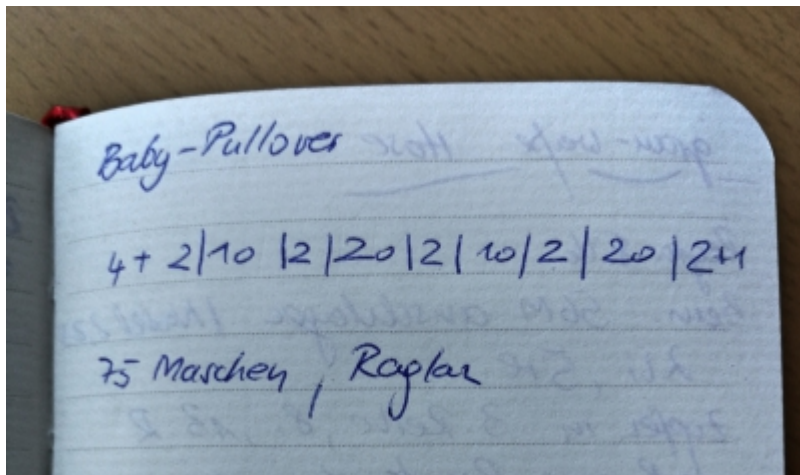 Baby-Pullover
4+ 2|10 |2|20|2| 10|2| 20|2+1
75 Maschen, Raglan